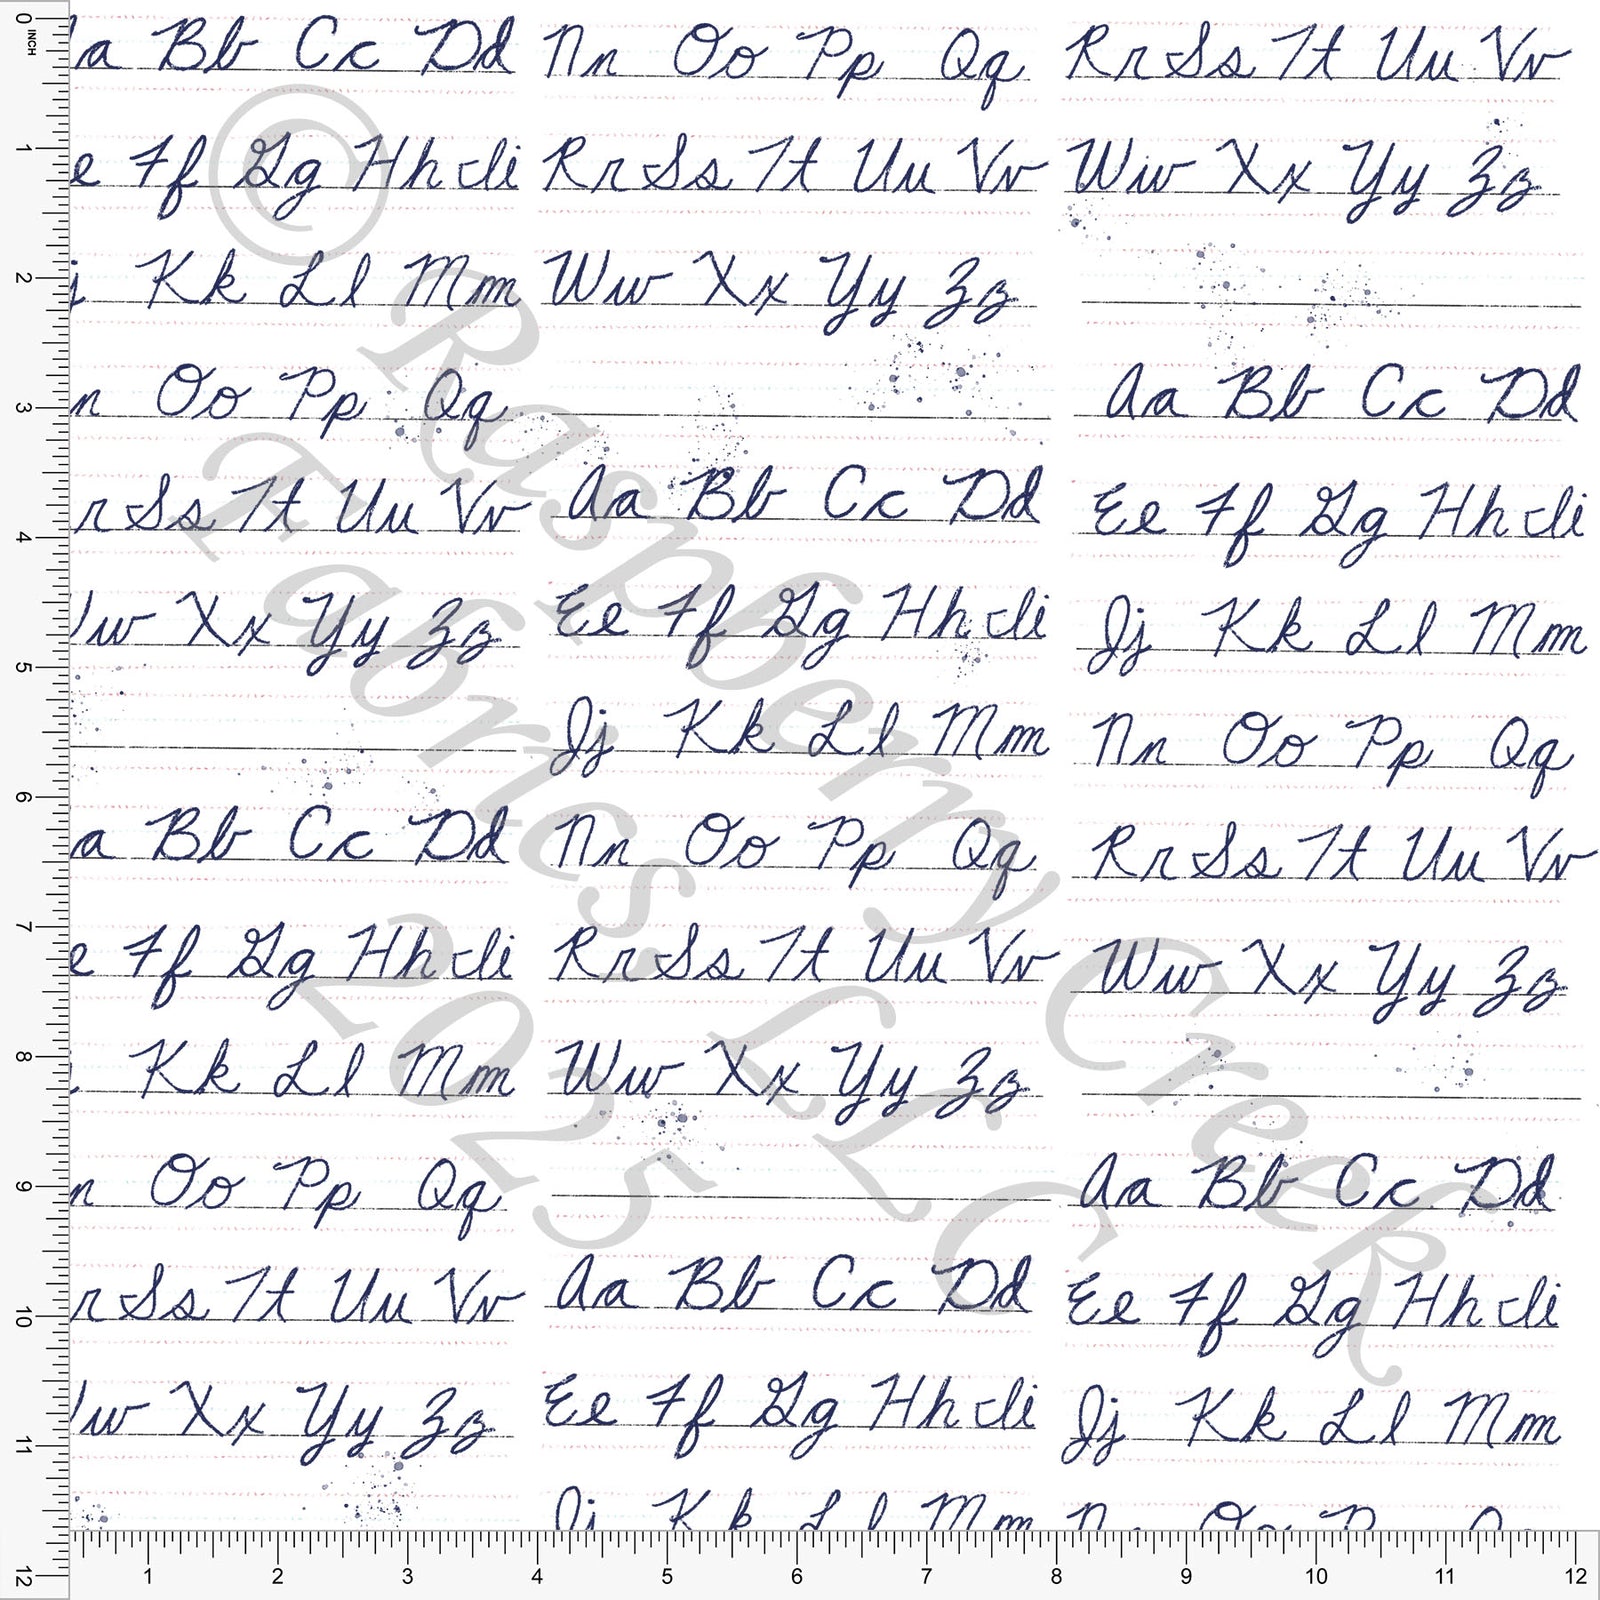 a Bb Cc Dd
e Ff Gg Hh Ii
j Kk Ll Mm
n Oo Pp Qq
r Ss Tt Uu Vv
w Xx Yy Zz
a Bb Cc Dd
e Ff Gg Hh Ii
Kk Ll Mm
n Oo Pp Qq
r Ss Tt Uu Vv
w Xx Yy Zz
Nn Oo Pp Qq
Rr Ss Tt Uu Vv
Ww Xx Yy Zz
Aa Bb Cc Dd
Ee Ff Gg Hh Ii
Jj Kk Ll Mm
Nn Oo Pp Qq
Rr Ss Tt Uu Vv
Ww Xx Yy Zz
Aa Bb Cc Dd
Ee Ff Gg Hh Ii
Jj Kk Ll Mm
Rr Ss Tt Uu Vv
Ww Xx Yy Zz
Aa Bb Cc Dd
Ee Ff Gg Hh Ii
Jj Kk Ll Mm
Nn Oo Pp Qq
Rr Ss Tt Uu Vv
Ww Xx Yy Zz
Aa Bb Cc Dd
Ee Ff Gg Hh Ii
Jj Kk Ll Mm
Nn Oo P Q
© Raspberry Creek
Fabrics LLC
2025
INCH
0 1 2 3 4 5 6 7 8 9 10 11 12
1 2 3 4 5 6 7 8 9 10 11 12